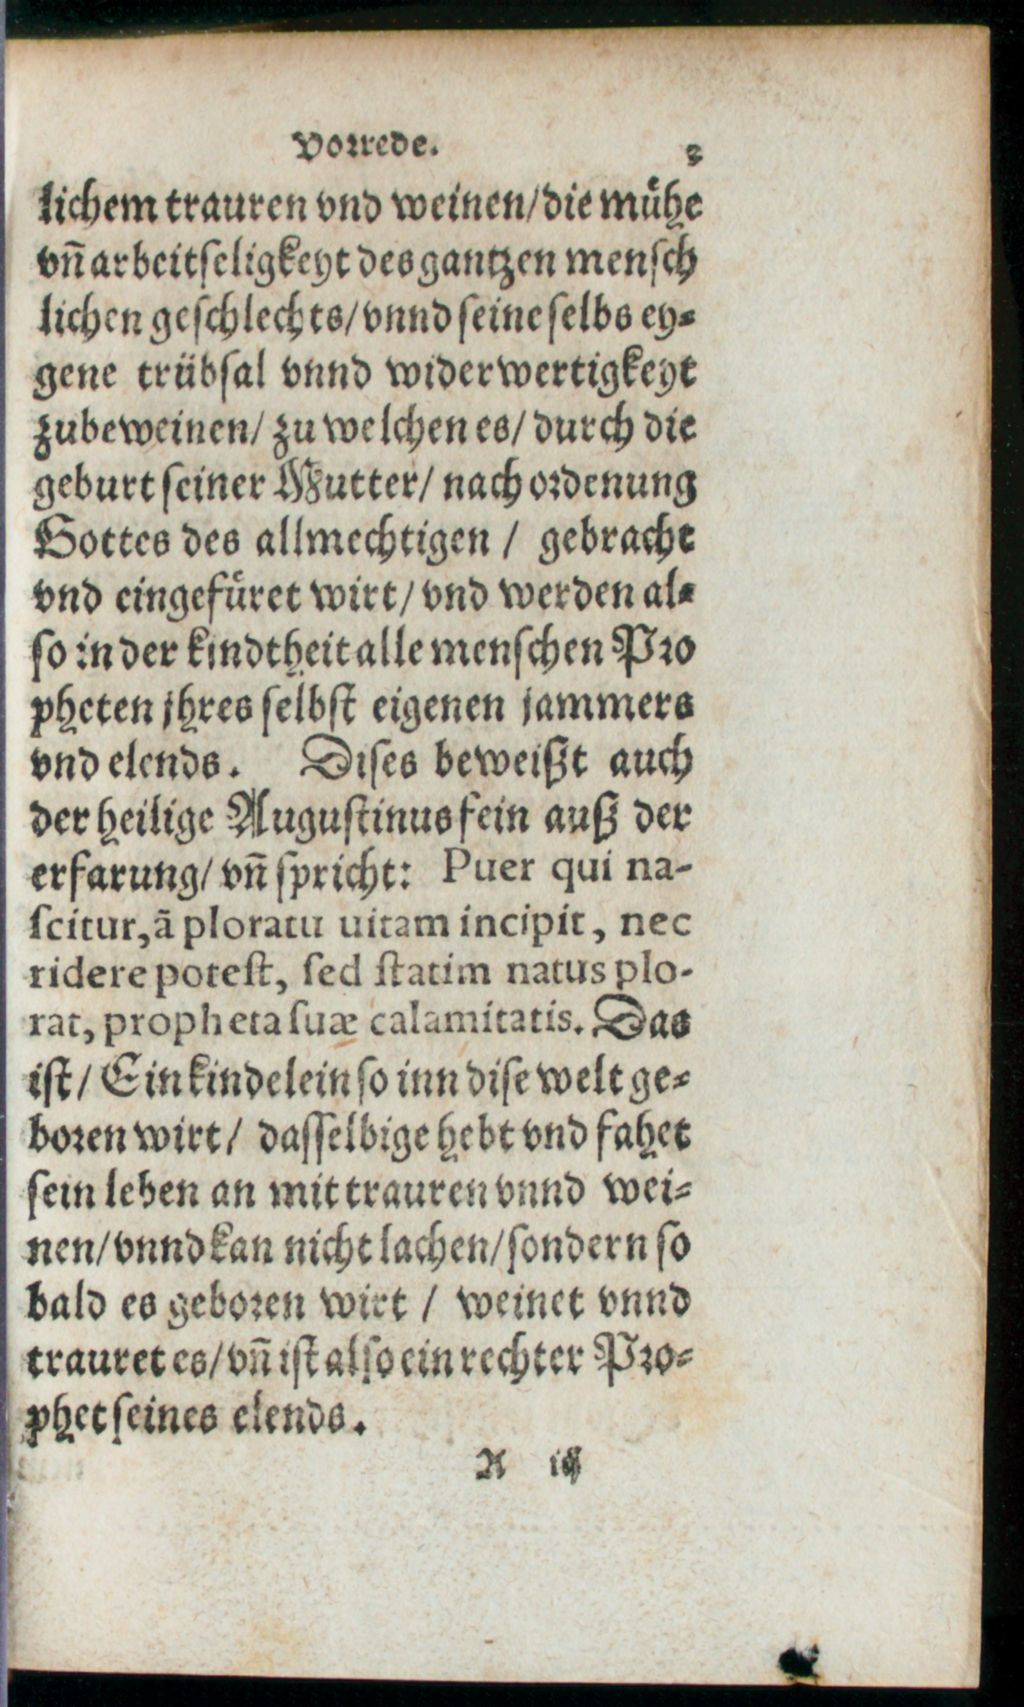 Vorrede. 3
lichem trauren vnd weinen/ die můhe
vñ arbeitseligkeyt des gantzen mensch
lichen geschlechts/ vnnd seine selbs ey⸗
gene trübsal vnnd widerwertigkeyt
zubeweinen/ zu welchen es/ durch die
geburt seiner Mutter/ nach ordenung
Gottes des allmechtigen / gebracht
vnd eingefüret wirt/ vnd werden al⸗
so in der kindtheit alle menschen Pro
pheten jhres selbst eigenen jammers
vnd elends. Dises beweißt auch
der heilige Augustinus fein auß der
erfarung/ vñ spricht: Puer qui na-
scitur, ā ploratu uitam incipit, nec
ridere potest, sed statim natus plo-
rat, propheta suæ calamitatis. Das
ist/ Ein kindelein so inn dise welt ge⸗
boren wirt/ dasselbige hebt vnd fahet
sein leben an mit trauren vnnd wei⸗
nen/ vnnd kan nicht lachen/ sondern so
bald es geboren wirt / weinet vnnd
trauret es/ vñ ist also ein rechter Pro⸗
phet seines elends.
A iij